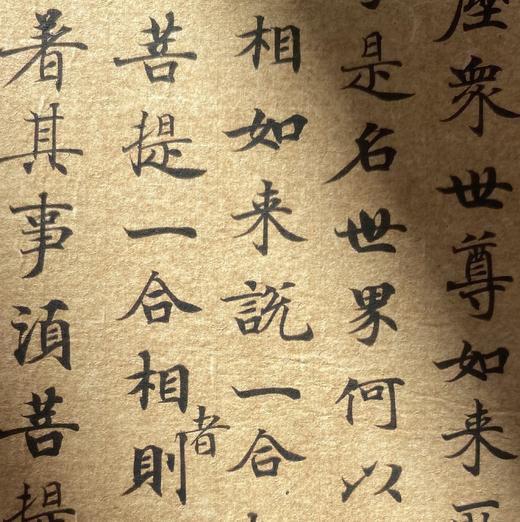 塵衆世尊如来
是名世界何以
相如来説一合
菩提一合相者則
着其事須菩提